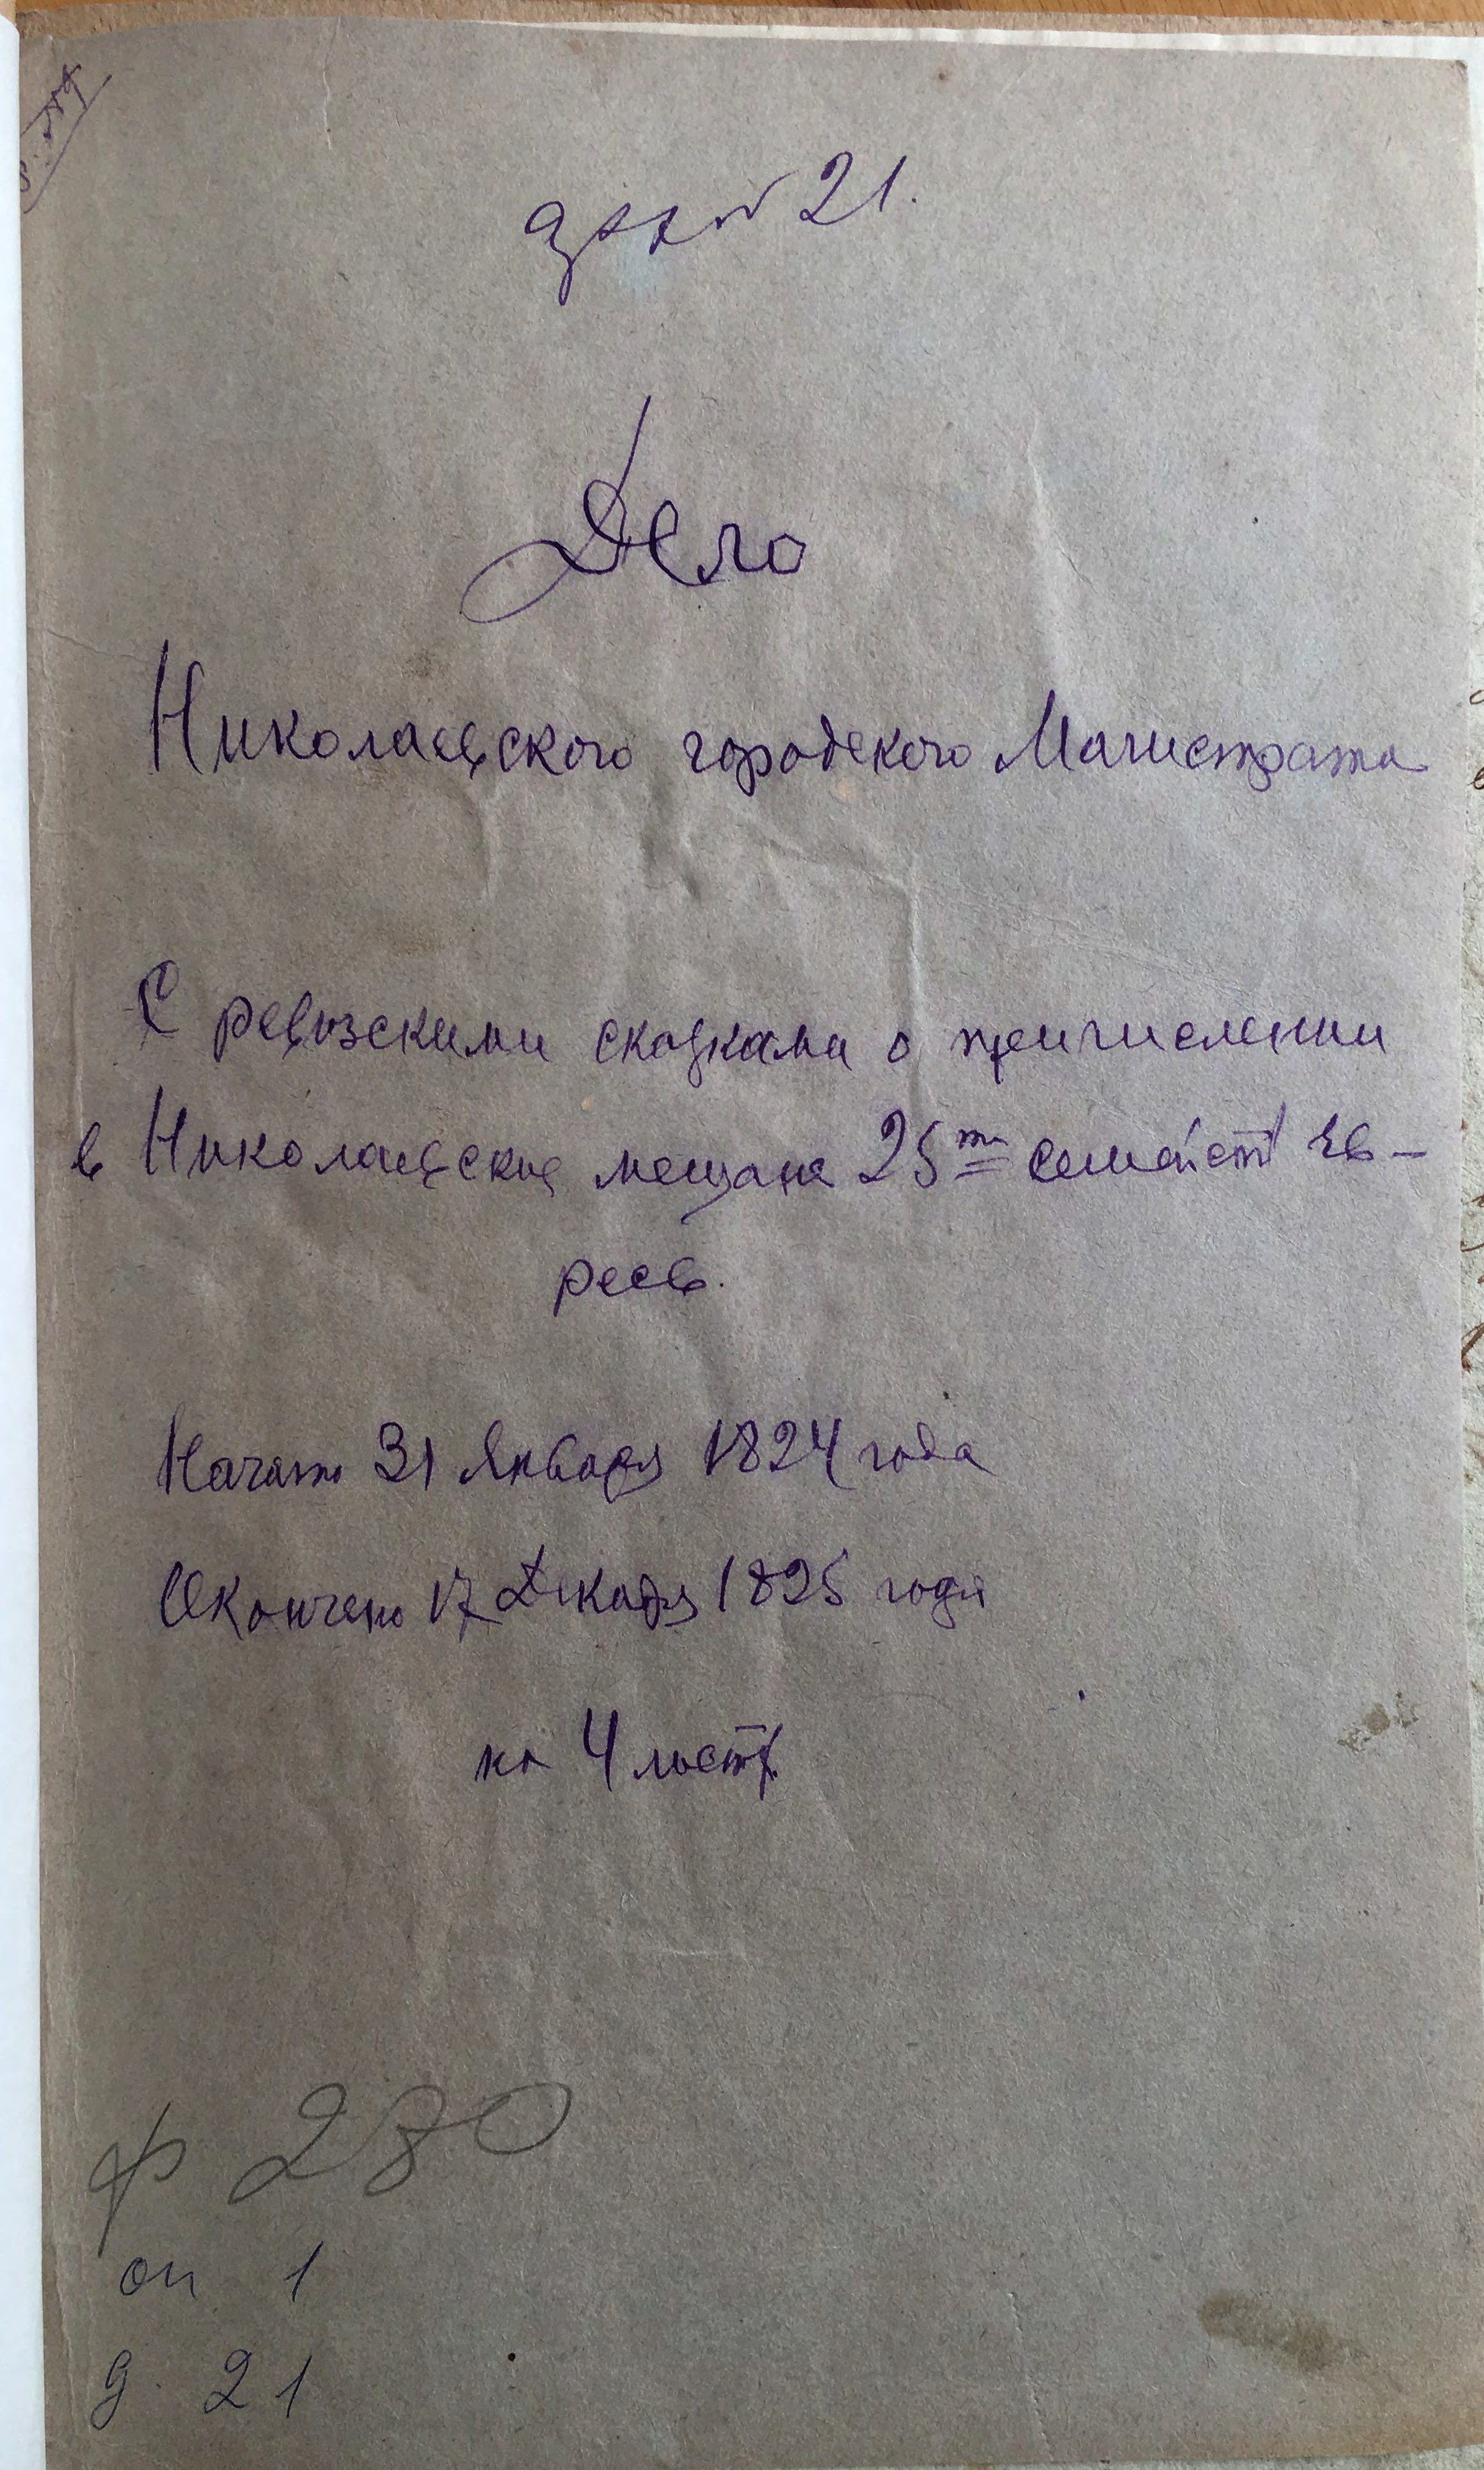 дел № 21.
Дело
Николаевского городского Магистрата
С ревизскими сказками о причислении
в Николаевские мещане 25ти семейств Ев-
реев.
Начато 31 Января 1824 года
Окончено 17 Декабря 1825 года
на 4 листх
ф 280
оп 1
д. 21